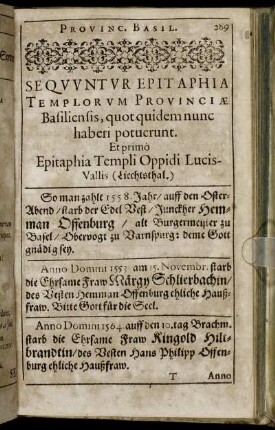 PROVINC. BASIL. 289
SEQVVNTVR EPITAPHIA
TEMPLORVM PROVINCIÆ
Basiliensis, quot quidem nunc
haberi potuerunt.
Et primò
Epitaphia Templi Oppidi Lucis-
Vallis (Liechtsthal.)
So man zahlt 1558. Jahr/ auff den Oster-
Abend/ starb der Edel Vest/ Junckher Hem-
man Offenburg / alt Burgermeister zu
Basel/ Obervogt zu Varnspurg: deme Gott
gnädig sey.
Anno Domini 1557 am 15. Novembr. starb
die Ehrsame Fraw Märgy Schlierbachin/
des Vesten Hemman Offenburg ehliche Hauß-
fraw. Bitte Gott für die Seel.
Anno Domini 1564 auff den 10. tag Brachm.
starb die Ehrsame Fraw Ringold Hili-
brandtin/ des Vesten Hans Philipp Offen-
burg ehliche Haußfraw.
T Anno